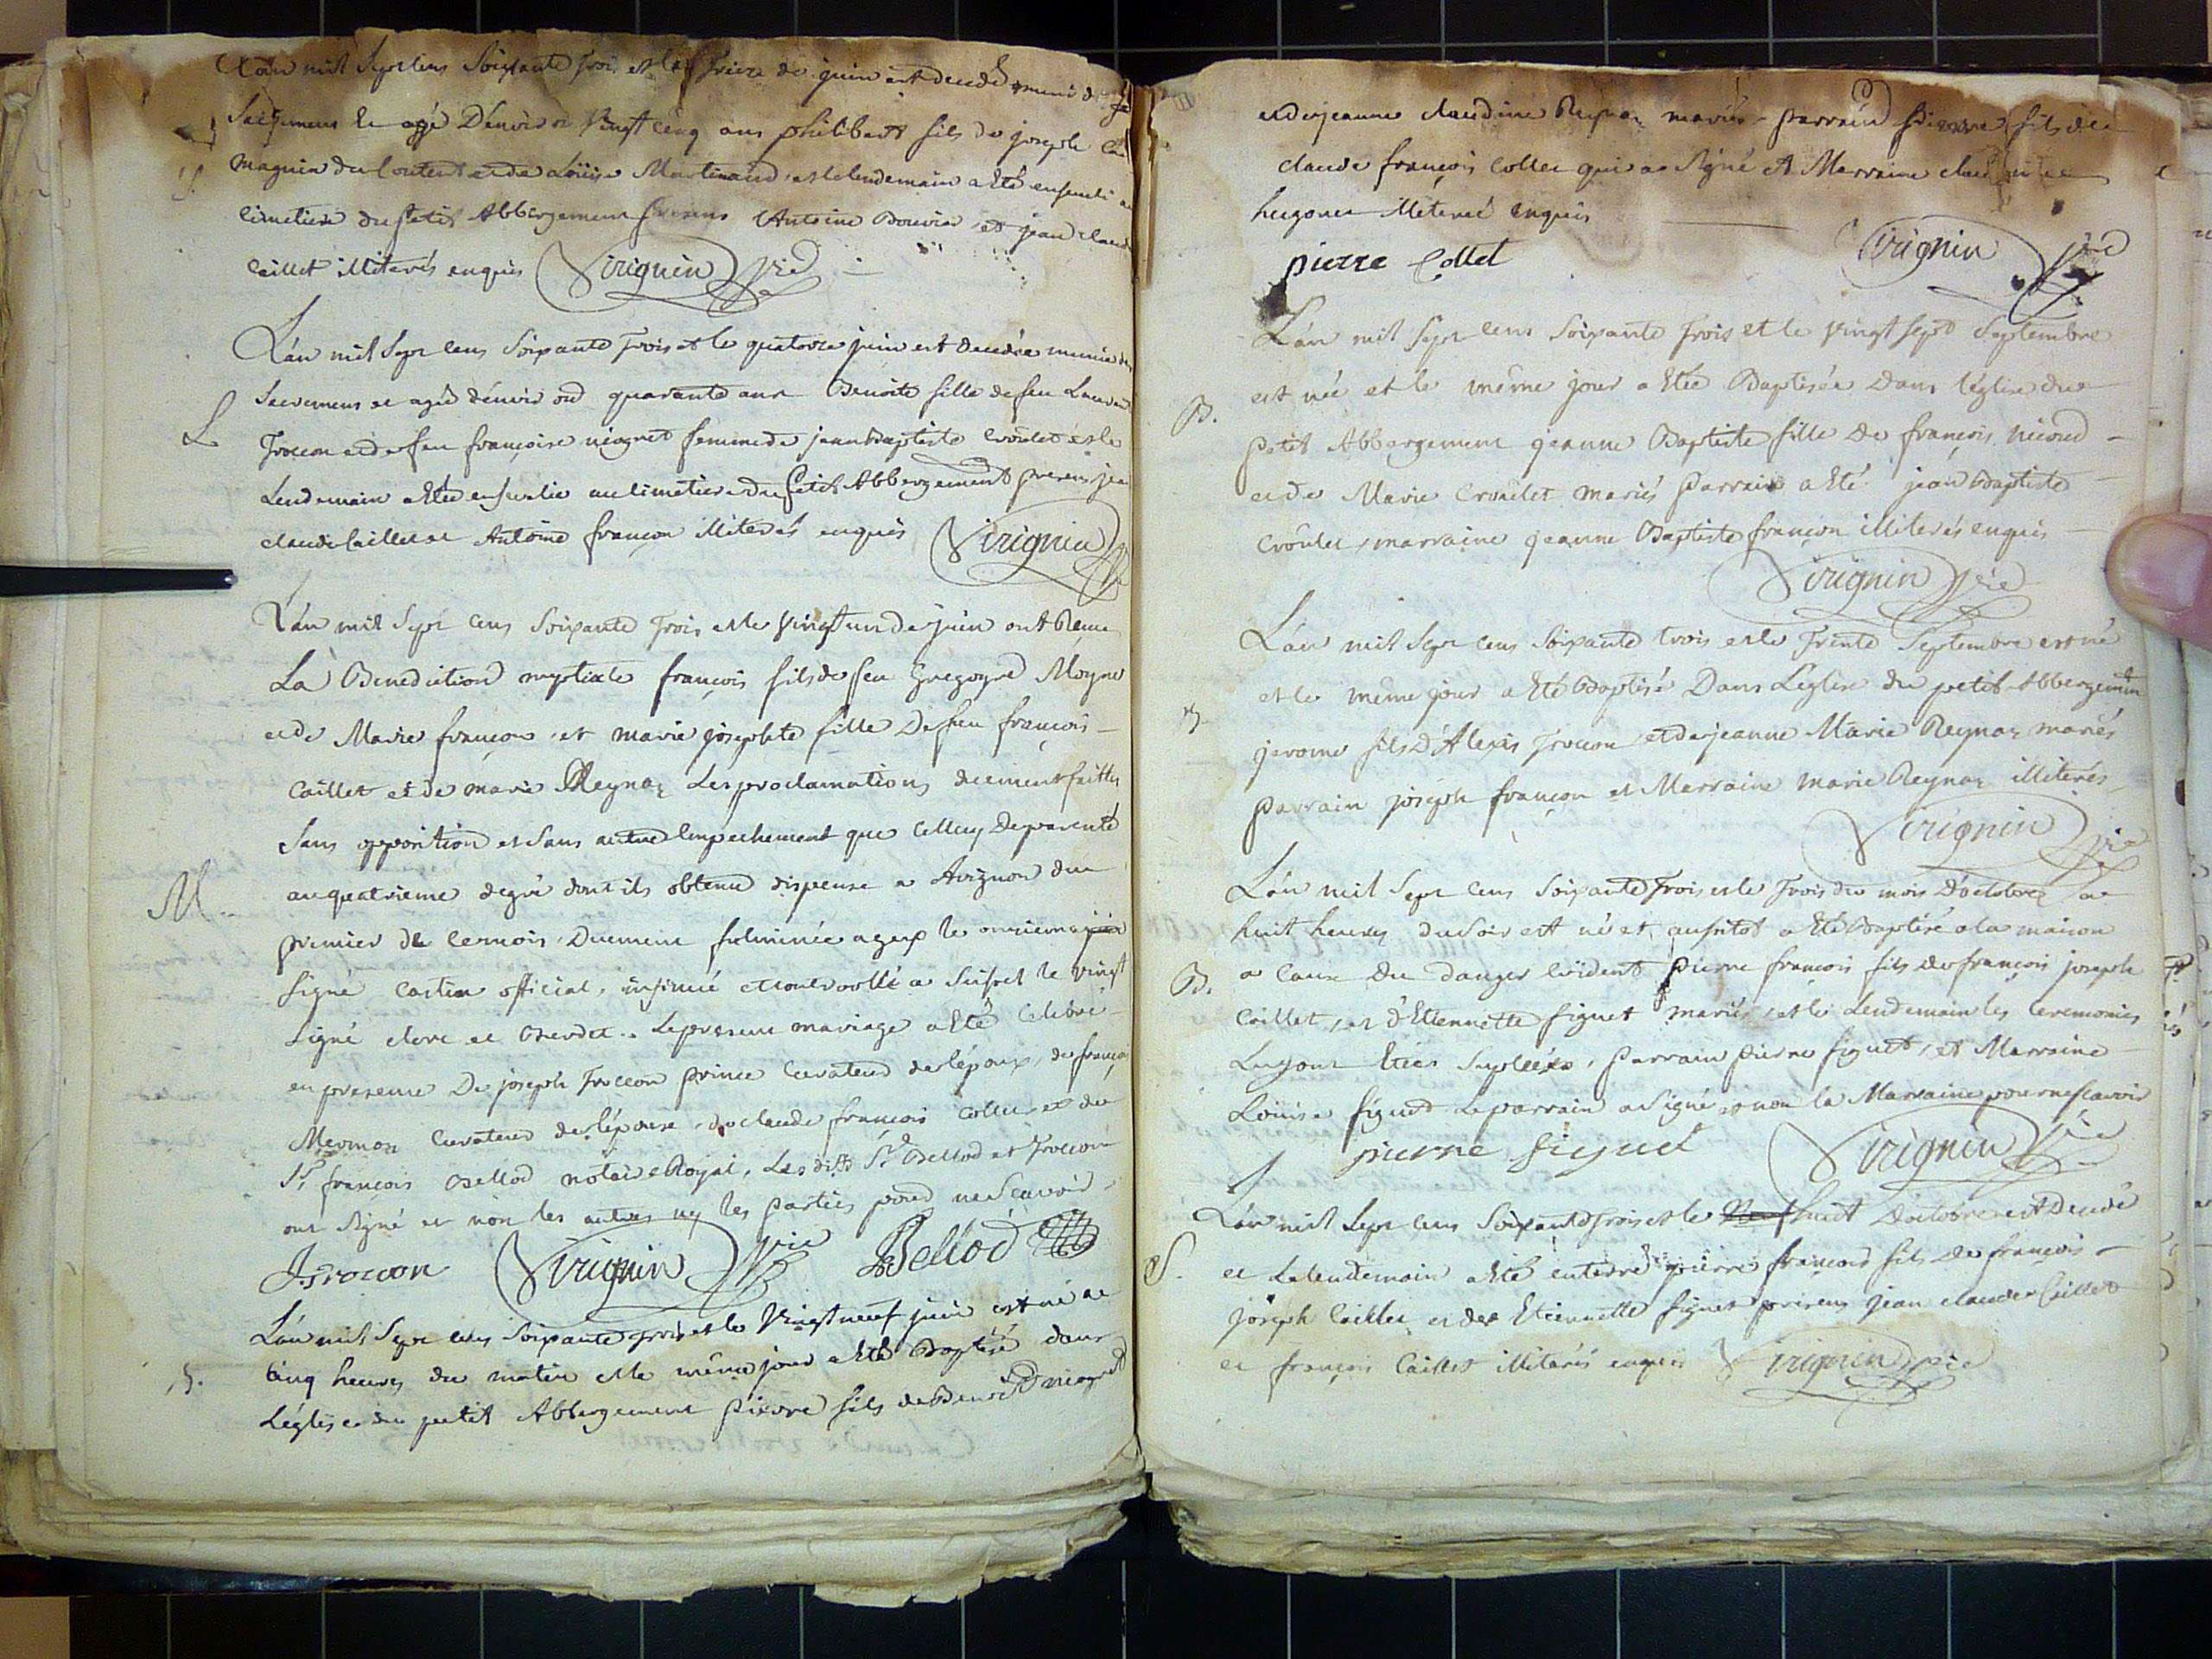 L'an mil Sept cens Soixante trois et le treize de juin est decedé muni des
Sacremens et agé d'environ vingt cinq ans philibert fils de joseph
magnin du Contens et de Loüise Martinand, et le lendemain a Eté enseveli au
Cimetiere du petit Abbergement presens Antoine Bouvier, et jean claude
Caillet illiterés enquis Virignin vic
L'an mil Sept cens Soixante trois et le quatorze juin est decedée munie des
S.
Sacremens et agée d'environ quarante ans Benoite fille de feu Laurent
Troccon et de feu françoise niogret femme de jean Baptiste Croulet et le
Lendemain a Eté ensevelie au Cimetiere du petit Abbergement presens jean
claude Caillet et Antoine françon illiterés enquis Virignin
L'an mil Sept cens Soixante trois et le vingt un de juin ont Reçeu
La Benediction nuptiale françois fils de feu Gregoyre Moyne
et de Marie françon, et marie josephte fille de feu françois
Caillet et de marie Reynaz Les proclamations deuement faittes
Sans opposition et Sans autre Empechement que Celluy de parenté
M.
au quatrieme degré dont ils obtenu dispense a Avignon du
premier de ce mois, Deuement fulminée a gex le onzieme juin
Signé Castin official, insinué et controollé a Seissel le vingt
Signé clerc et Berdet. Le present mariage a Eté Celebré
en presence De joseph Troccon prince Curateur de l'époux, de françois
Mermoz Curateur de l'épouse, de claude françois Collet et de
Sr. françois Bellod notaire Royal, Les dits Sr. Bellod et Troccon
ont Signé et non les autres ny les parties pour ne Scavoir
J. Troccon Virignin vic Bellod
L'an mil Sept cens Soixante trois et le vingt neuf juin est né a
B.
Cinq heures du matin et le même jour a Eté Baptisé dans
L'église du petit Abbergement pierre fils de Benoit niogret
et de jeanne claudine Reynaz mariés parrain pierre fils de
claude françois Collet qui a Signé et Marraine claudine
hugonet illiterée enquis
pierre Collet Virignin vic
L'an mil Sept cens Soixante trois et le vingt sept Septembre
B.
est née et le même jour a Etée Baptisée Dans l'église du
petit Abbergement jeanne Baptiste fille De françois nicoud
et de Marie Croulet mariés parrain a Eté jean Baptiste
Croulet, marraine jeanne Baptiste françon illiterés enquis
Virignin vic
L'an mil Sept cens Soixante trois et le trente Septembre est né
et le même jour a Eté Baptisé Dans L'église du petit Abbergement
B.
jerome fils d'Alexis Troccon et de jeanne Marie Reynaz mariés
parrain joseph françon et Marraine marie Reynaz illiterés
Virignin vic
L'an mil Sept cens Soixante trois et le trois du mois d'octobre a
huit heures du Soir est né et ausitot a Eté Baptisé a la maison
B.
a Cause du danger Evident pierre françois fils de françois joseph
Caillet, et d'Etiennette figuet mariés, et le Lendemain les Ceremonies
Luy ont Etées Supleées, parrain pierre figuet, et Marraine
Loüise figuet Le parrain a Signé et non la Marraine pour ne Scavoir
pierre figuet Virignin vic
L'an mil Sept cens Soixante trois et le Neuf huit d'octobre est decedé
S.
et Le lendemain a Eté enterré pierre françois fils de françois
joseph Caillet et de Etiennette figuet presens jean claude Caillet
et françois Caillet illiterés enquis Virignin vic